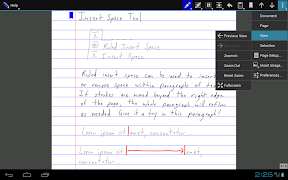 Help
Insert Space Tool
Ruled Insert Space
Insert Space
Ruled insert space can be used to insert
or remove space within paragraphs of text.
If strokes are moved beyond the right edge
of the page, the whole paragraph will reflow
as needed. Give it a try on this paragraph!
Lorem ipsum sit amet, consectetur
Lorem ipsum sit amet,
consectetur
Document
Page
View
Selection
Page Setup...
Insert Image...
Preferences...
Previous View
Zoom In
Zoom Out
Reset Zoom
Fullscreen
2:25